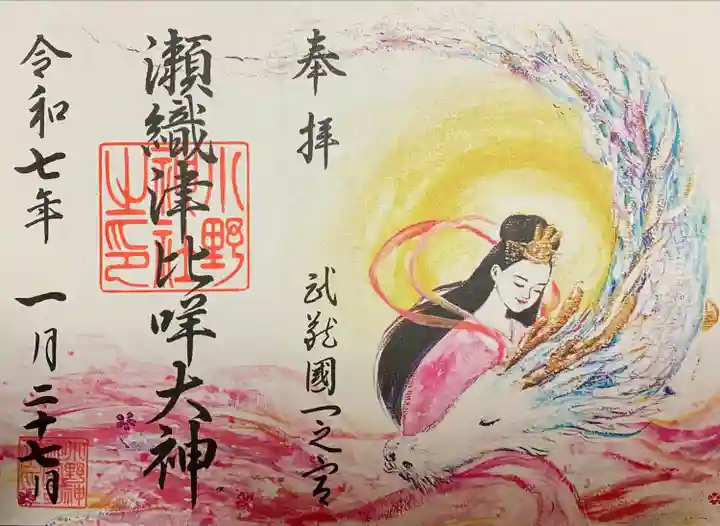 奉拝
武蔵國一之宮
瀬織津比咩大神
小野神社之印
令和七年 一月二十七日